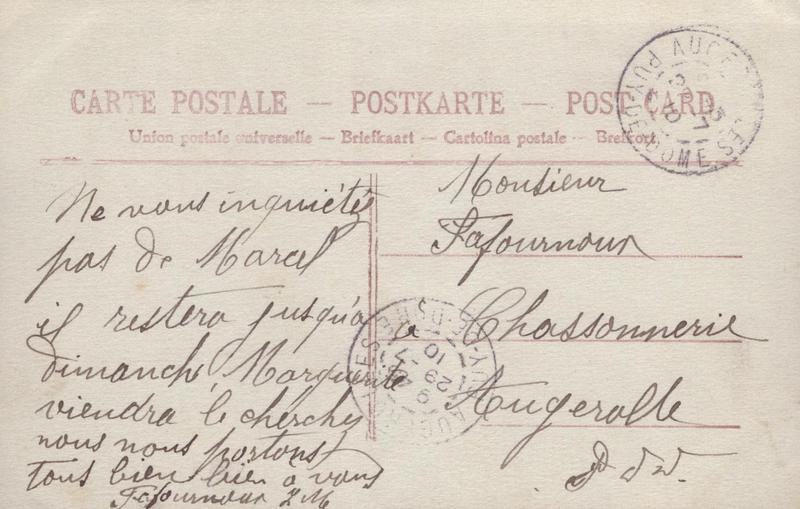 CARTE POSTALE — POSTKARTE — POST CARD
Union postale universelle — Briefkaart — Cartolina postale — Brefkort
Ne vous inquiétés
pas de Marcel
il restera jusqu'a
dimanch, Marguerite
viendra le cherchy
nous nous portons
tous bien bien a vous
Fafournoux
Monsieur
Fafournoux
a Chassonnerie
Augerolle
P d d
AUGEROLLES
PUY-DE-DOME
AUGEROLLES
29
10